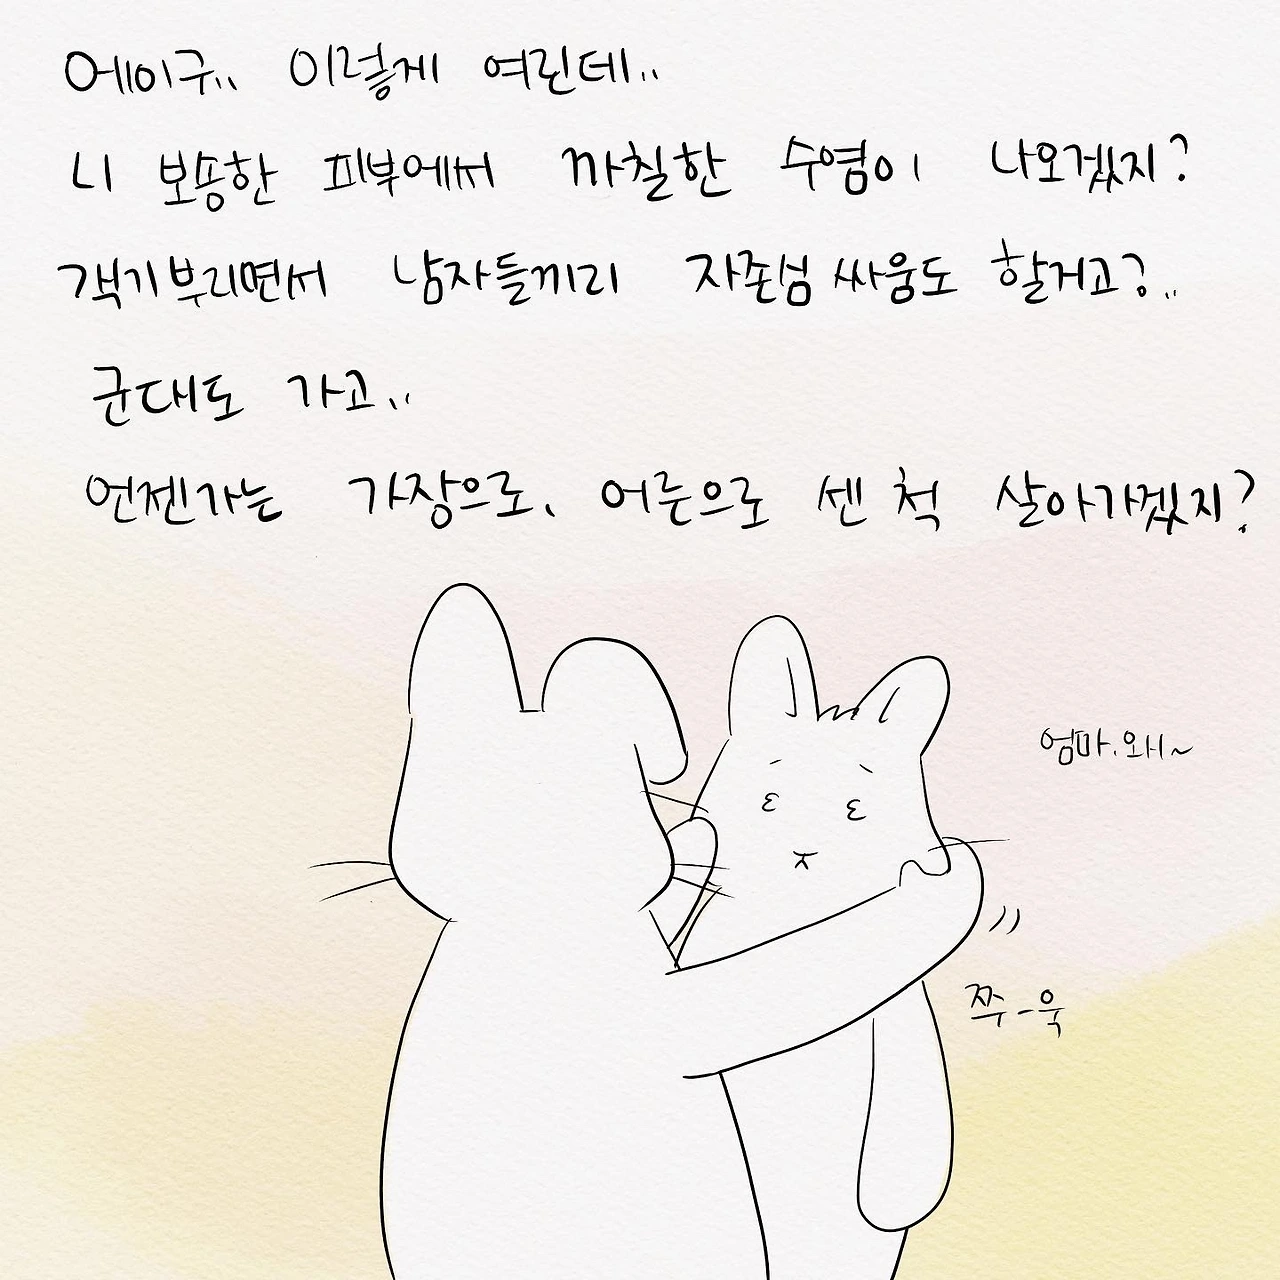 에이구.. 이렇게 여린데..
니 보송한 피부에서 까칠한 수염이 나오겠지?
객기부리면서 남자들끼리 자존심 싸움도 할거고?..
군대도 가고..
언젠가는 가장으로, 어른으로 센 척 살아가겠지?
엄마.왜~
쭈-욱